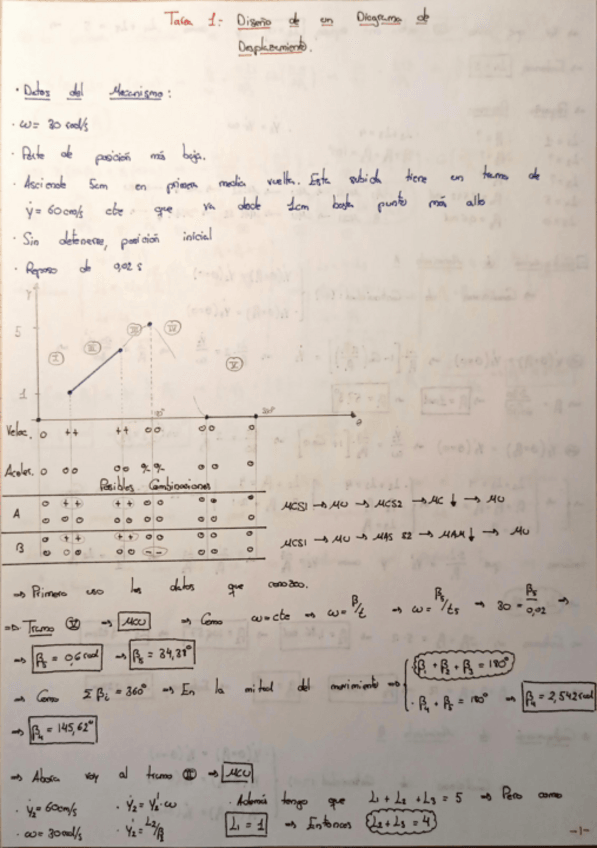 Tarea 1:- Diseño de un Diagrama de
Desplazamiento.
· Datos del Mecanismo:
· ω = 30 rad/s
· Parte de posición más baja.
· Asciende 5cm en primera media vuelta. Esta subida tiene un tramo de
ẏ = 60cm/s cte que va desde 1cm hasta punto más alto
· Sin detenerse, posición inicial
· Reposo de 0,02 s
5
I II III IV V
1
Veloc. 0 ++ ++ 00 00 0
Aceler. 0 00 00 00 0
Posibles Combinaciones
A 0 ++ ++ 00 00 0 MCS1 → MU → MCS2 → MC ↓ → MU
0 00 00 00 00 0
B 0 ++ ++ 00 00 0 MCS1 → MU → MAS S2 → MAM ↓ → MU
0 00 00 -- 00 0
⇒ Primero uso los datos que conozco.
⇒ Tramo V → MCU ⇒ Como ω = cte ⇒ ω = β/t ⇒ ω = β₅/t₅ ⇒ 30 = β₅/0,02 ⇒
⇒ β₅ = 0,6 rad ⇒ β₅ = 34,38°
⇒ Como Σβᵢ = 360° ⇒ En la mitad del movimiento ⇒ β₁ + β₂ + β₃ = 180°
· β₄ + β₅ = 180° ⇒ β₄ = 2,542 rad
⇒ β₄ = 145,62°
⇒ Ahora voy al tramo II → MCU
· ẏ₂ = 60cm/s · ẏ₂ = y₂' · ω · Además tengo que L₁ + L₂ + L₃ = 5 ⇒ Pero como
· ω = 30 rad/s · y₂' = L₂/β₂ L₁ = 1 ⇒ Entonces L₂ + L₃ = 4
-1-